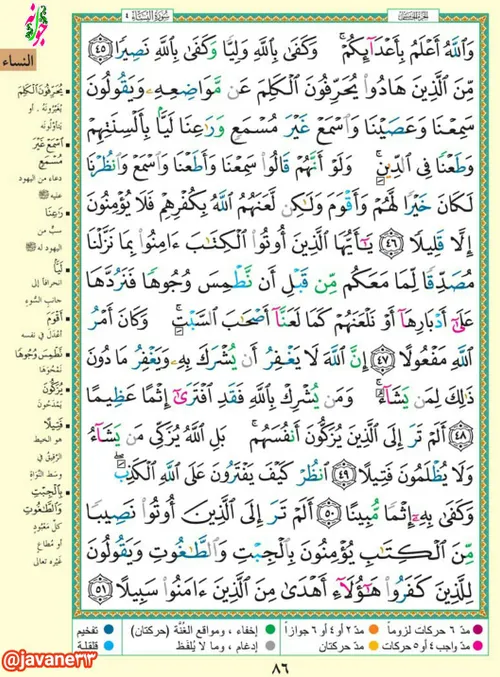 سُورَةُ النِّسَاء ٤
النساء
وَٱللَّهُ أَعْلَمُ بِأَعْدَآئِكُمْ ۚ وَكَفَىٰ بِٱللَّهِ وَلِيًّا وَكَفَىٰ بِٱللَّهِ نَصِيرًا ٤٥
مِّنَ ٱلَّذِينَ هَادُوا۟ يُحَرِّفُونَ ٱلْكَلِمَ عَن مَّوَاضِعِهِۦ وَيَقُولُونَ
سَمِعْنَا وَعَصَيْنَا وَٱسْمَعْ غَيْرَ مُسْمَعٍ وَرَٰعِنَا لَيًّۢا بِأَلْسِنَتِهِمْ
وَطَعْنًا فِى ٱلدِّينِ ۚ وَلَوْ أَنَّهُمْ قَالُوا۟ سَمِعْنَا وَأَطَعْنَا وَٱسْمَعْ وَٱنظُرْنَا
لَكَانَ خَيْرًا لَّهُمْ وَأَقْوَمَ وَلَٰكِن لَّعَنَهُمُ ٱللَّهُ بِكُفْرِهِمْ فَلَا يُؤْمِنُونَ
إِلَّا قَلِيلًا ٤٦ يَٰٓأَيُّهَا ٱلَّذِينَ أُوتُوا۟ ٱلْكِتَٰبَ ءَامِنُوا۟ بِمَا نَزَّلْنَا
مُصَدِّقًا لِّمَا مَعَكُم مِّن قَبْلِ أَن نَّطْمِسَ وُجُوهًا فَنَرُدَّهَا
عَلَىٰٓ أَدْبَارِهَآ أَوْ نَلْعَنَهُمْ كَمَا لَعَنَّآ أَصْحَٰبَ ٱلسَّبْتِ ۚ وَكَانَ أَمْرُ
ٱللَّهِ مَفْعُولًا ٤٧ إِنَّ ٱللَّهَ لَا يَغْفِرُ أَن يُشْرَكَ بِهِۦ وَيَغْفِرُ مَا دُونَ
ذَٰلِكَ لِمَن يَشَآءُ ۚ وَمَن يُشْرِكْ بِٱللَّهِ فَقَدِ ٱفْتَرَىٰٓ إِثْمًا عَظِيمًا
٤٨ أَلَمْ تَرَ إِلَى ٱلَّذِينَ يُزَكُّونَ أَنفُسَهُم ۚ بَلِ ٱللَّهُ يُزَكِّى مَن يَشَآءُ
وَلَا يُظْلَمُونَ فَتِيلًا ٤٩ ٱنظُرْ كَيْفَ يَفْتَرُونَ عَلَى ٱللَّهِ ٱلْكَذِبَ ۖ
وَكَفَىٰ بِهِۦٓ إِثْمًا مُّبِينًا ٥٠ أَلَمْ تَرَ إِلَى ٱلَّذِينَ أُوتُوا۟ نَصِيبًا
مِّنَ ٱلْكِتَٰبِ يُؤْمِنُونَ بِٱلْجِبْتِ وَٱلطَّٰغُوتِ وَيَقُولُونَ
لِلَّذِينَ كَفَرُوا۟ هَٰٓؤُلَآءِ أَهْدَىٰ مِنَ ٱلَّذِينَ ءَامَنُوا۟ سَبِيلًا ٥١
يُحَرِّفُونَ ٱلْكَلِمَ
يُغَيِّرُونَهُ ، أو
يَتَأَوَّلُونَه
ٱسْمَعْ غَيْرَ
مُسْمَعٍ
دعاء من اليهود
عليه ﷺ
رَٰعِنَا
سبٌّ من
اليهود له ﷺ
لَيًّا
انحرافاً إلى
جانب السُّوء
أَقْوَمَ
أعْدَلَ في نفسه
نَّطْمِسَ وُجُوهًا
نَمْحُوَهَا
يُزَكُّونَ
يَمْدَحُون
فَتِيلًا
هو الخيط
الرَّقيق في
وسَط النَّوَاة
بِٱلْجِبْتِ
وَٱلطَّٰغُوتِ
كلّ مَعْبُودٍ
أو مُطاعٍ
غَيْره تعالى
مدّ ٦ حركات لزوماً
مدّ ٢ أو ٤ أو ٦ جوازاً
إخفاء ، ومواقع الغُنَّة (حركتان)
تفخيم
مدّ واجب ٤ أو ٥ حركات
مدّ حركتان
إدغام ، وما لا يُلفَظ
قلقلة
٨٦
@javane٢٣